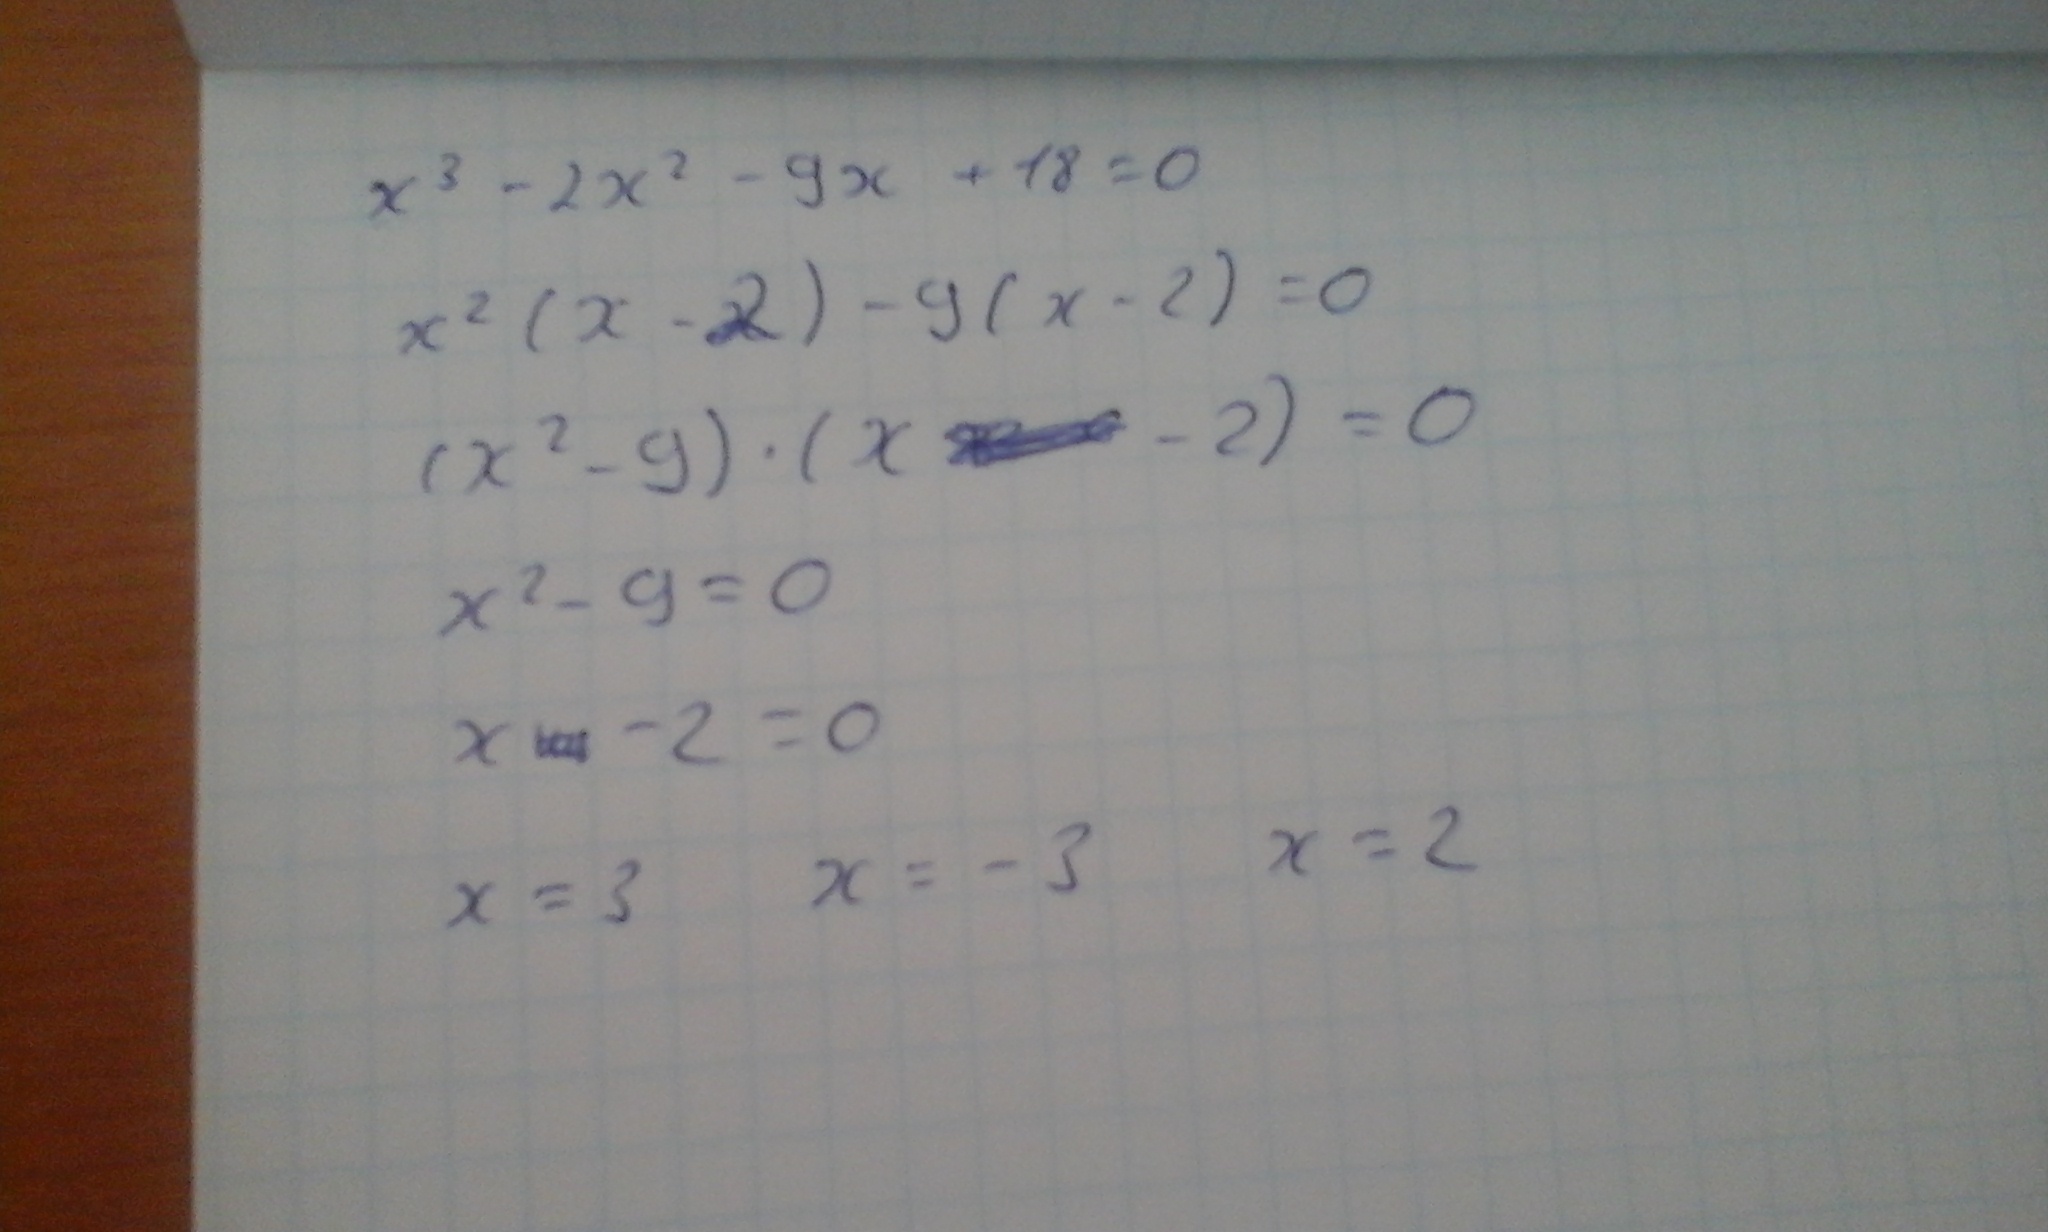 x³ - 2x² - 9x + 18 = 0
x² (x - 2) - 9 (x - 2) = 0
(x² - 9) · (x - 2) = 0
x² - 9 = 0
x - 2 = 0
x = 3 x = -3 x = 2